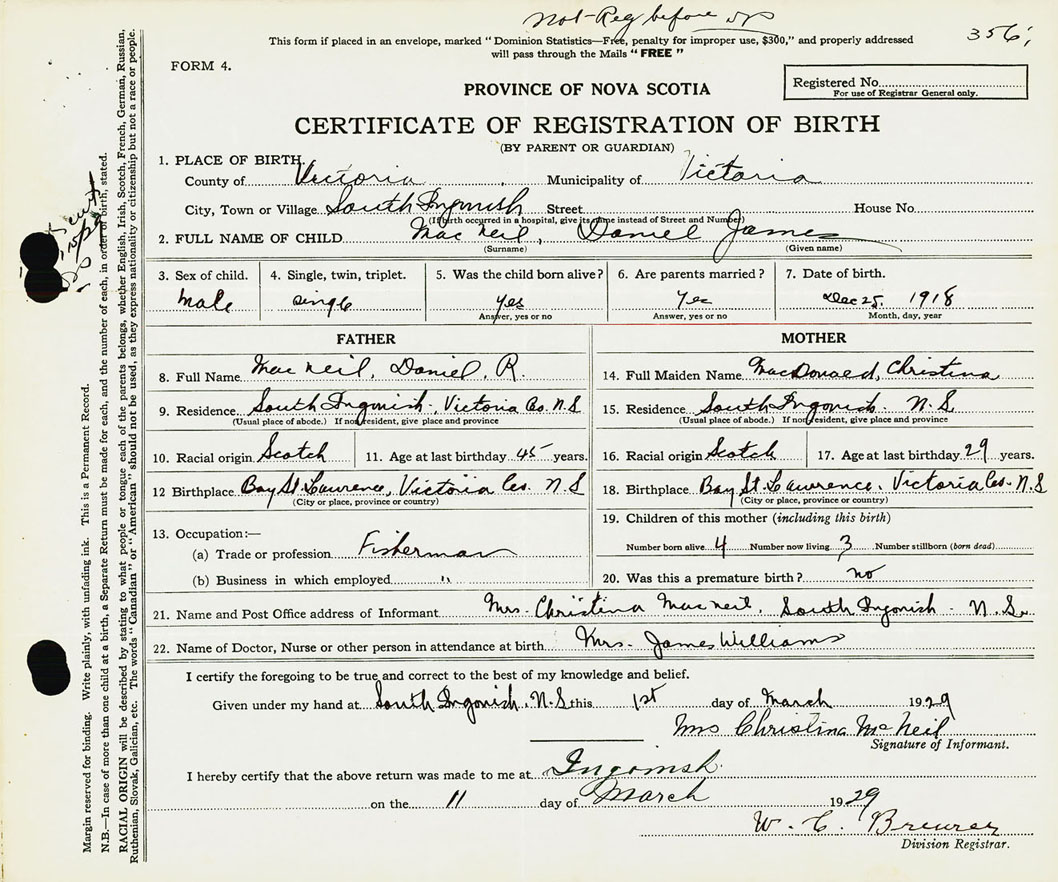 Not Reg before
356
This form if placed in an envelope, marked "Dominion Statistics—Free, penalty for improper use, $300," and properly addressed
will pass through the Mails "FREE"
FORM 4.
Registered No
For use of Registrar General only.
PROVINCE OF NOVA SCOTIA
CERTIFICATE OF REGISTRATION OF BIRTH
(BY PARENT OR GUARDIAN)
1. PLACE OF BIRTH.
County of Victoria, Municipality of Victoria
City, Town or Village South Ingonish Street House No.
(If birth occurred in a hospital, give its name instead of Street and Number)
2. FULL NAME OF CHILD Mac Neil, Daniel James
(Surname) (Given name)
3. Sex of child. 4. Single, twin, triplet. 5. Was the child born alive? 6. Are parents married? 7. Date of birth.
male single yes Yes Dec 25, 1918
Answer, yes or no Answer, yes or no Month, day, year
FATHER MOTHER
8. Full Name Mac Neil, Daniel, R. 14. Full Maiden Name MacDonald, Christina
9. Residence South Ingonish, Victoria Co. N.S 15. Residence South Ingonish. N.S
(Usual place of abode.) If non-resident, give place and province (Usual place of abode.) If not resident, give place and province
10. Racial origin Scotch 11. Age at last birthday 45 years. 16. Racial origin Scotch 17. Age at last birthday 29 years.
12 Birthplace Bay St. Lawrence, Victoria Co. N S 18. Birthplace Bay St. Lawrence. Victoria Co. N.S
(City or place, province or country) (City or place, province or country)
13. Occupation:— 19. Children of this mother (including this birth)
(a) Trade or profession Fisherman Number born alive 4 Number now living 3 Number stillborn (born dead)
(b) Business in which employed " 20. Was this a premature birth? no
21. Name and Post Office address of Informant Mrs. Christina Mac Neil, South Ingonish - N.S.
22. Name of Doctor, Nurse or other person in attendance at birth Mrs. James Williams
I certify the foregoing to be true and correct to the best of my knowledge and belief.
Given under my hand at South Ingonish, N.S this 1st day of March 1929
Mrs Christina McNeil
Signature of Informant.
I hereby certify that the above return was made to me at Ingonish
on the 11 day of March 1929
W. C. Brewer
Division Registrar.
Margin reserved for binding. Write plainly, with unfading ink. This is a Permanent Record.
N.B.—In case of more than one child at a birth, a Separate Return must be made for each, and the number of each, in order of birth, stated.
RACIAL ORIGIN will be described by stating to what people or tongue each of the parents belongs, whether English, Irish, Scotch, French, German, Russian,
Ruthenian, Slovak, Galician, etc. The words "Canadian" or "American" should not be used, as they express nationality or citizenship but not a race or people.